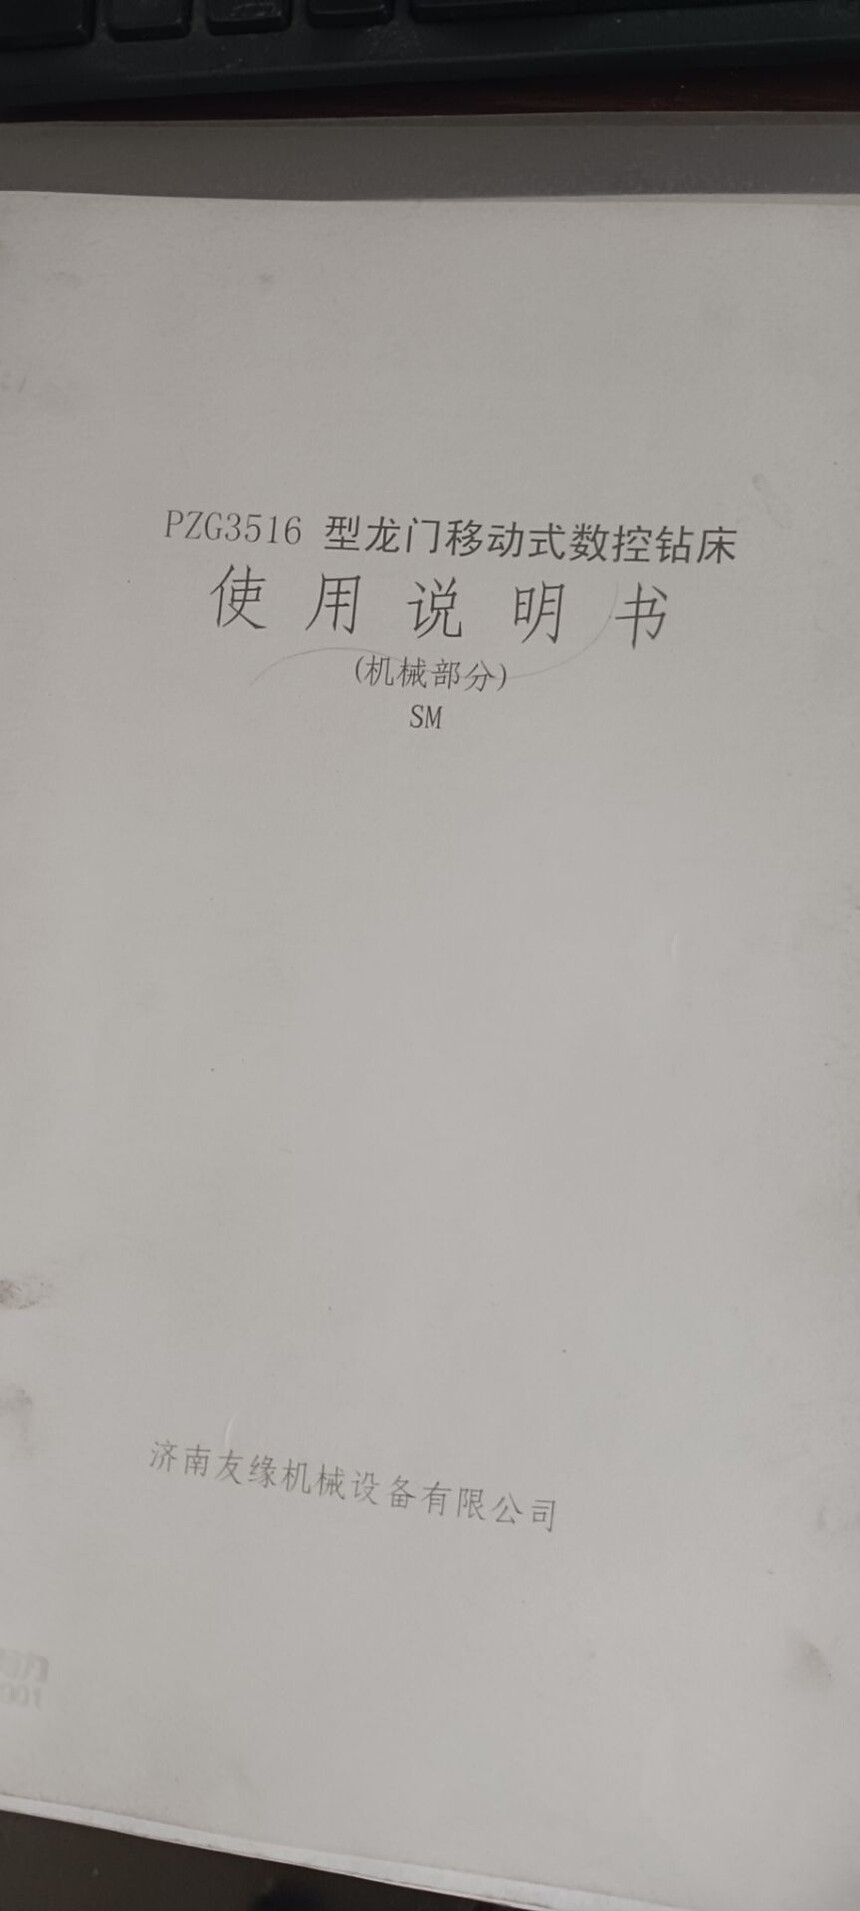 PZG3516 型龙门移动式数控钻床
使用说明书
(机械部分)
SM
济南友缘机械设备有限公司